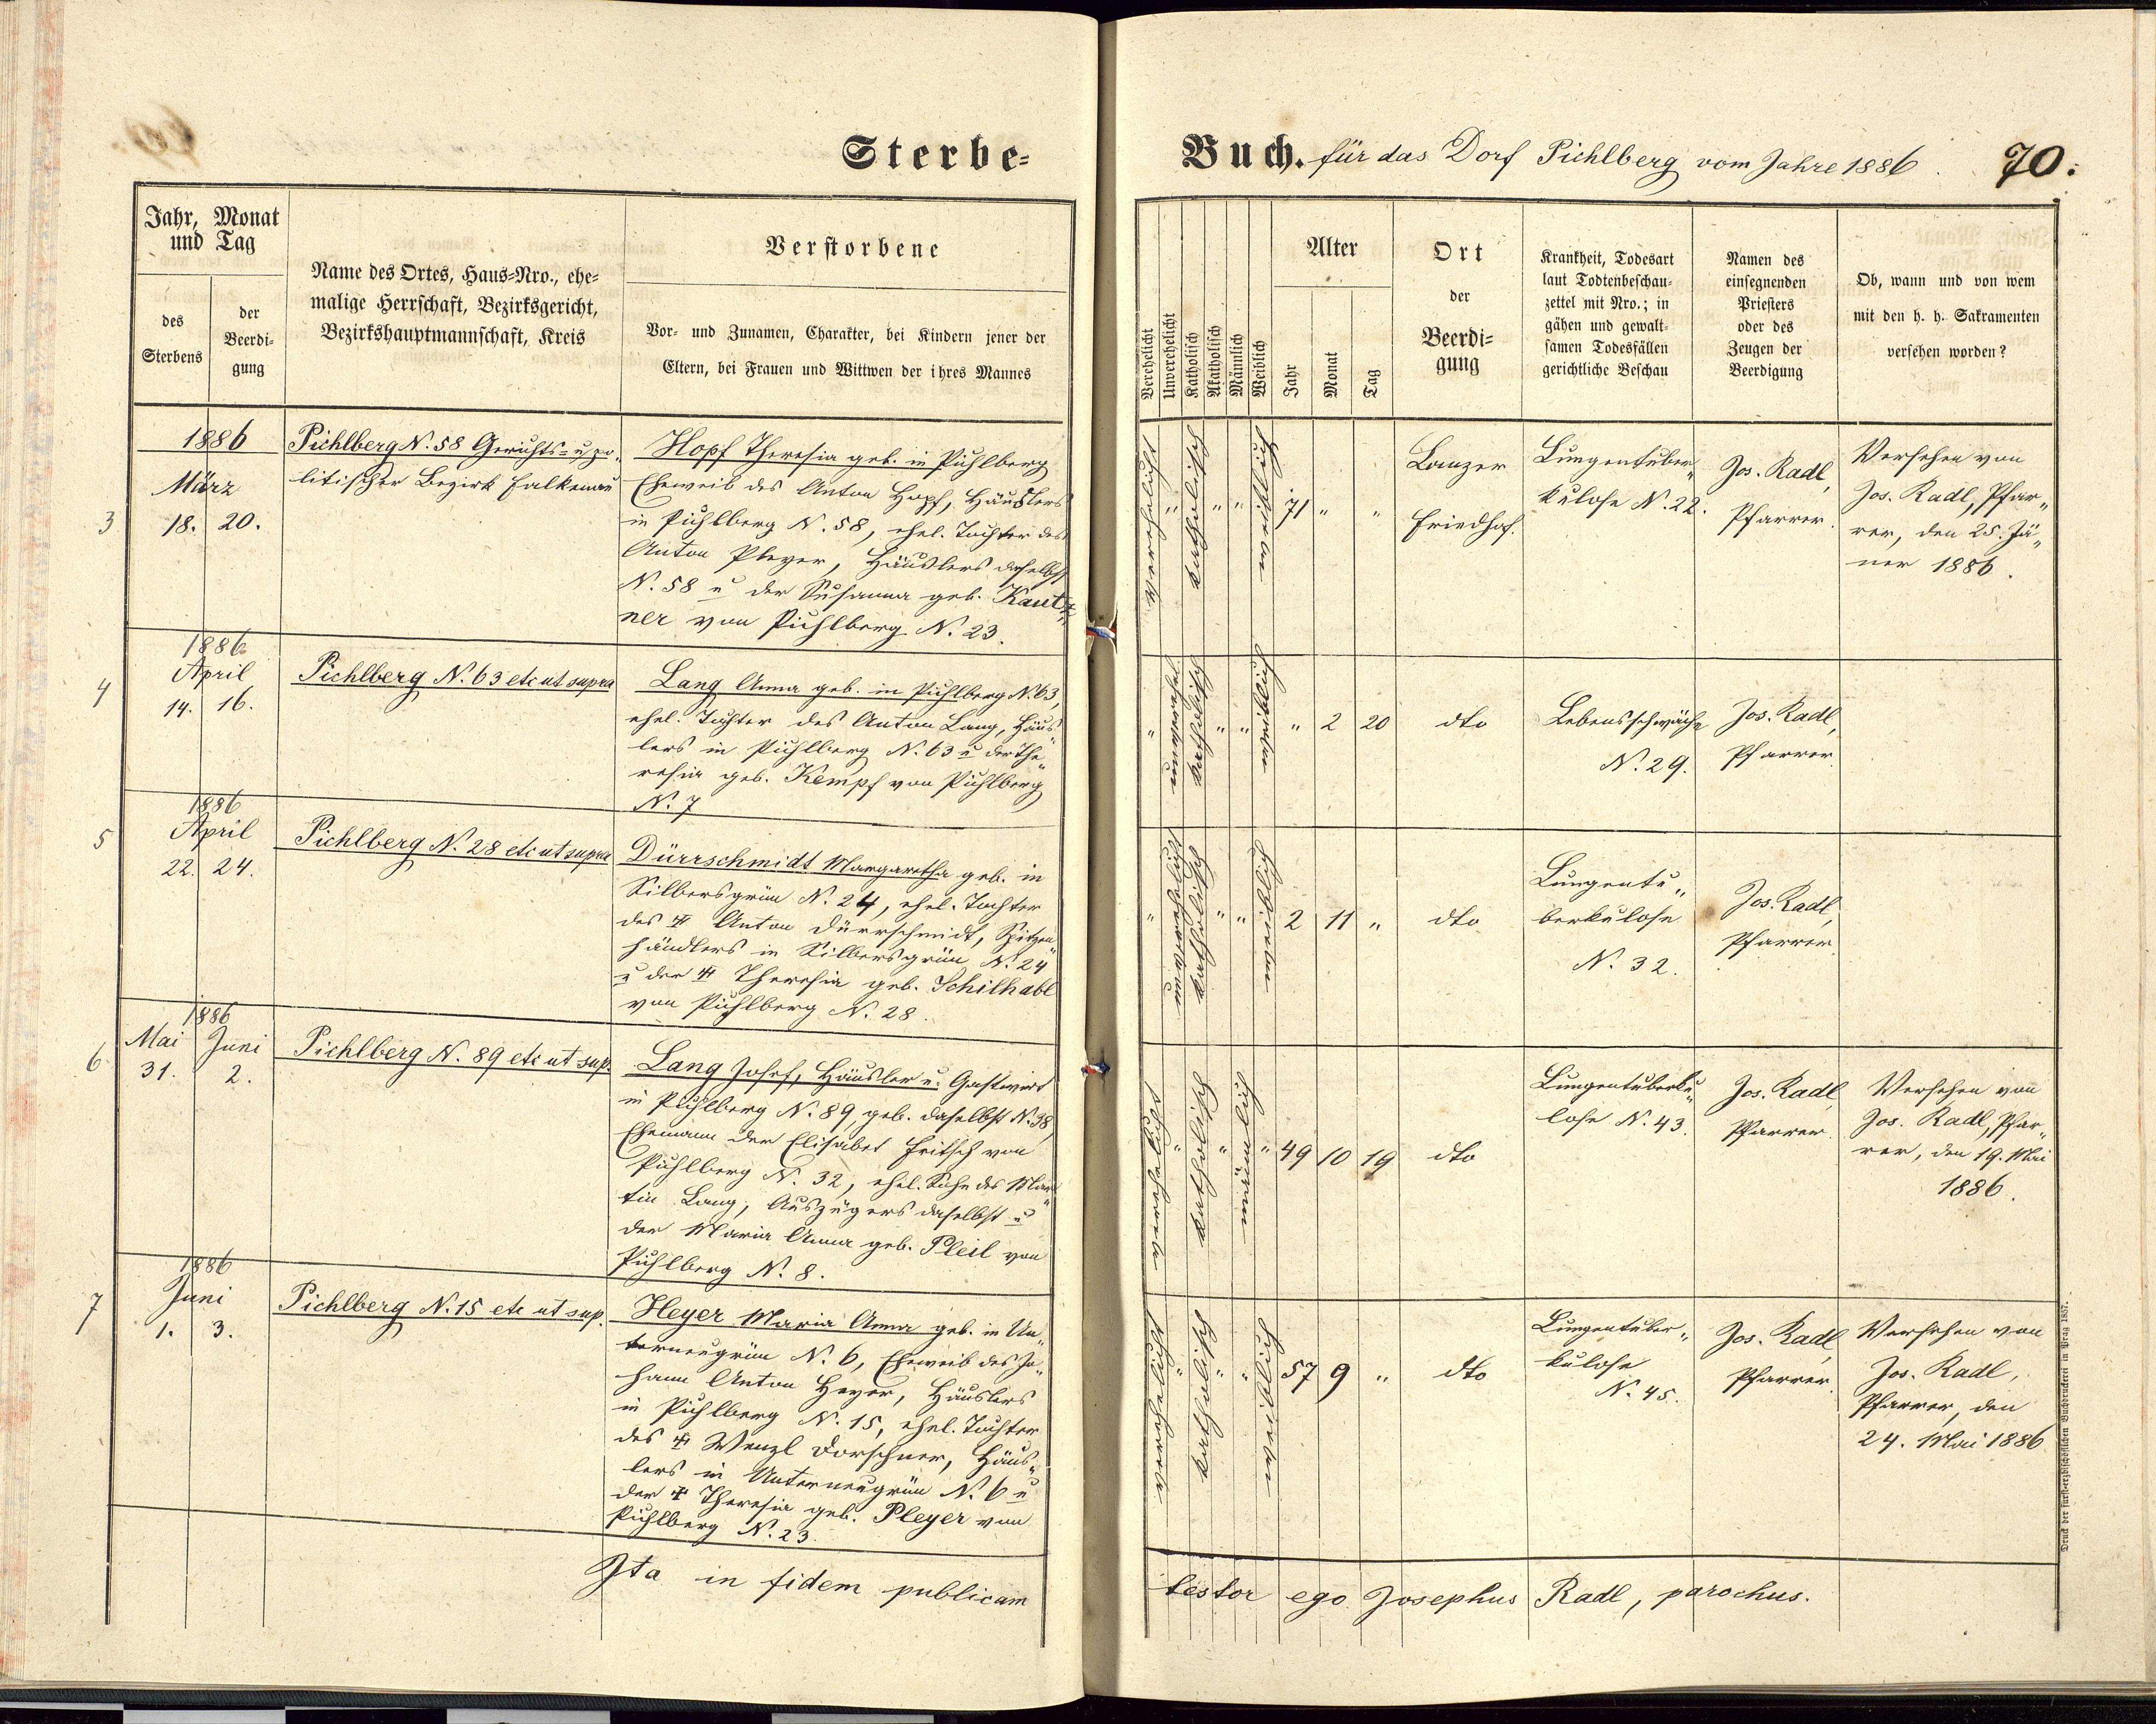 Sterbe-
Buch. für das Dorf Pichlberg vom Jahre 1886. 70.
Jahr, Monat
und Tag
des
Sterbens
der
Beerdi-
gung
Name des Ortes, Haus-Nro., ehe-
malige Herrschaft, Bezirksgericht,
Bezirkshauptmannschaft, Kreis
Verstorbene
Vor- und Zunamen, Charakter, bei Kindern jener der
Eltern, bei Frauen und Wittwen der ihres Mannes
Verehelicht
Unverehelicht
Katholisch
Akatholisch
Männlich
Weiblich
Alter
Jahr
Monat
Tag
Ort
der
Beerdi-
gung
Krankheit, Todesart
laut Todtenbeschau-
zettel mit Nro.; in
gähen und gewalt-
samen Todesfällen
gerichtliche Beschau
Namen des
einsegnenden
Priesters
oder des
Zeugen der
Beerdigung
Ob, wann und von wem
mit den h. h. Sakramenten
versehen worden?
3
1886
März
18. 20.
Pichlberg N. 58 Gerichts- u po-
litischer Bezirk Falkenau
Hopf Theresia geb. in Pichlberg
Eheweib des Anton Hopf, Häuslers
in Pichlberg N. 58, ehel. Tochter des
Anton Pleyer, Häuslers daselbst
N. 58 u der Susanna geb. Kautz„
ner von Pichlberg N. 23.
verehelicht " katholisch " " weiblich 71 " "
Lanzer
Friedhof.
Lungentuber„
kulose N. 22.
Jos. Radl,
Pfarrer.
Versehen von
Jos. Radl, Pfar„
rer, den 25. Jä„
ner 1886.
4
1886
April
14. 16.
Pichlberg N. 63 etc ut supra
Lang Anna geb. in Pichlberg N. 63,
ehel. Tochter des Anton Lang, Häus„
lers in Pichlberg N. 63 u der The„
resia geb. Kempf von Pichlberg
N. 7
" unverehel. katholisch " " weiblich " 2 20 dto
Lebensschwäche
N. 29.
Jos. Radl,
Pfarrer.
5
1886
April
22. 24.
Pichlberg N. 28 etc ut supra
Dürrschmidt Margaretha geb. in
Silbersgrün N. 24, ehel. Tochter
des ✝ Anton Dürrschmidt, Spitzen„
händlers in Silbersgrün N. 24
u der ✝ Theresia geb. Schilhabl
von Pichlberg N. 28.
" unverehelicht katholisch " " weiblich 2 11 " dto
Lungentu„
berkulose
N. 32.
Jos. Radl,
Pfarrer.
6
1886
Mai Juni
31. 2.
Pichlberg N. 89 etc ut sup.
Lang Josef, Häusler u. Gastwirt
in Pichlberg N. 89, geb. daselbst N. 38,
Ehemann der Elisabet Fritsch von
Pichlberg N. 32, ehel. Sohn des Mar„
tin Lang, Auszügers daselbst u
der Maria Anna geb. Pleil von
Pichlberg N. 8.
verehelicht " katholisch " männlich " 49 10 19 dto
Lungentuberku„
lose N. 43.
Jos. Radl,
Pfarrer.
Versehen von
Jos. Radl, Pfar„
rer, den 19. Mai
1886.
7
1886
Juni
1. 3.
Pichlberg N. 15 etc ut sup.
Heyer Maria Anna geb. in Un„
terneugrün N. 6, Eheweib des Jo„
hann Anton Heyer, Häuslers
in Pichlberg N. 15, ehel. Tochter
des ✝ Wenzl Dorschner, Häus„
lers in Unterneugrün N. 6 u
der ✝ Theresia geb. Pleyer von
Pichlberg N. 23.
verehelicht " katholisch " " weiblich 57 9 " dto
Lungentuber„
kulose
N. 45.
Jos. Radl,
Pfarrer.
Versehen von
Jos. Radl,
Pfarrer, den
24. Mai 1886
Ita in fidem publicam
testor ego Josephus Radl, parochus.
Druck der fürst-erzbischöflichen Buchdruckerei in Prag 1857.